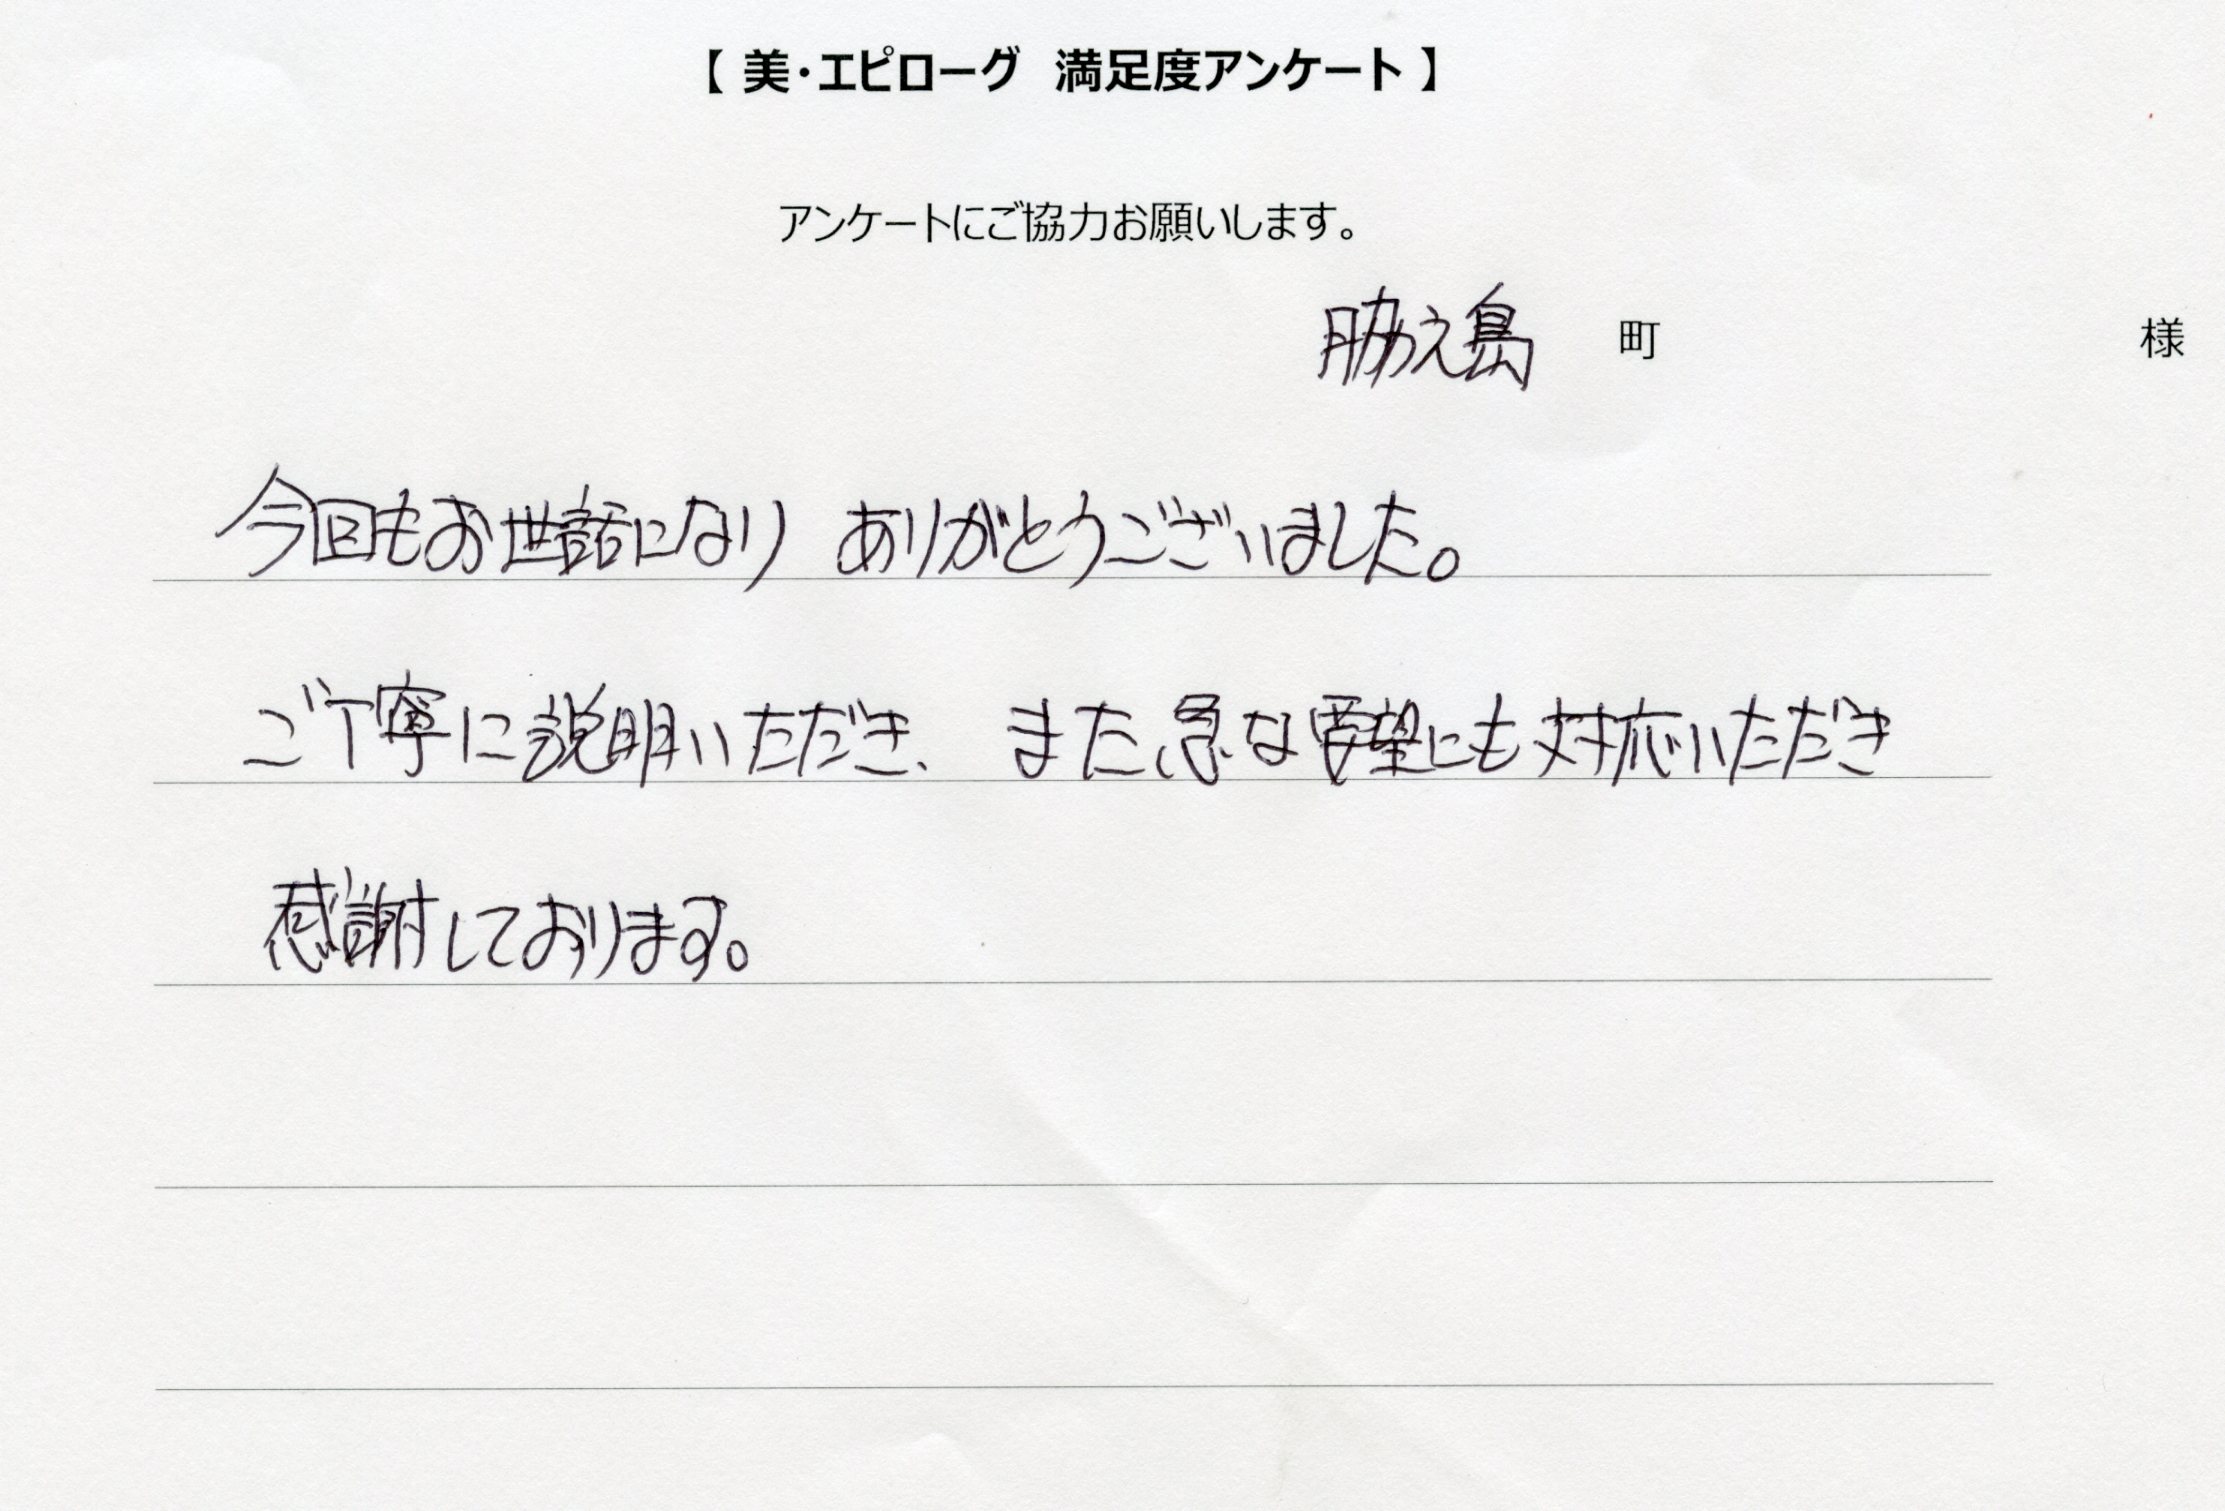 【 美・エピローグ 満足度アンケート 】
アンケートにご協力お願いします。
脇之島 町 様
今回もお世話になり ありがとうございました。
ご丁寧に説明いただき、また急な要望にも対応いただき
感謝しております。